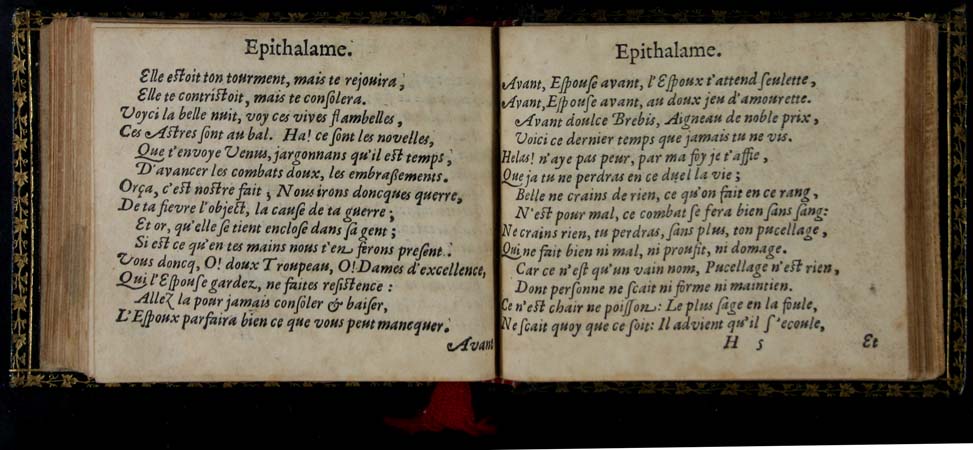 Epithalame.
Elle estoit ton tourment, mais te rejouira,
Elle te contristoit, mais te consolera.
Voyci la belle nuit, voy ces vives flambelles,
Ces Astres sont au bal. Ha! ce sont les novelles,
Que t'envoye Venus, jargonnans qu'il est temps,
D'avancer les combats doux, les embraßements.
Orça, c'est nostre fait; Nous irons doncques querre,
De ta fievre l'object, la cause de ta guerre;
Et or, qu'elle se tient enclose dans sa gent;
Si est ce qu'en tes mains nous t'en ferons present.
Vous doncq, O! doux Troupeau, O! Dames d'excellence,
Qui l'Espouse gardez, ne faites resistence:
Allez la pour jamais consoler & baiser,
L'Espoux parfaira bien ce que vous peut mancquer.
Avant
Epithalame.
Avant, Espouse avant, l'Espoux t'attend seulette,
Avant, Espouse avant, au doux jeu d'amourette.
Avant doulce Brebis, Aigneau de noble prix,
Voici ce dernier temps que jamais tu ne vis.
Helas! n'aye pas peur, par ma foy je t'affie,
Que ja tu ne perdras en ce duel la vie;
Belle ne crains de rien, ce qu'on fait en ce rang,
N'est pour mal, ce combat se fera bien sans sang:
Ne crains rien, tu perdras, sans plus, ton pucellage,
Qui ne fait bien ni mal, ni proufit, ni domage.
Car ce n'est qu'un vain nom, Pucellage n'est rien,
Dont personne ne scait ni forme ni maintien.
Ce n'est chair ne poisson: Le plus sage en la foule,
Ne scait quoy que ce soit: Il advient qu'il s'ecoule,
H 5
Et